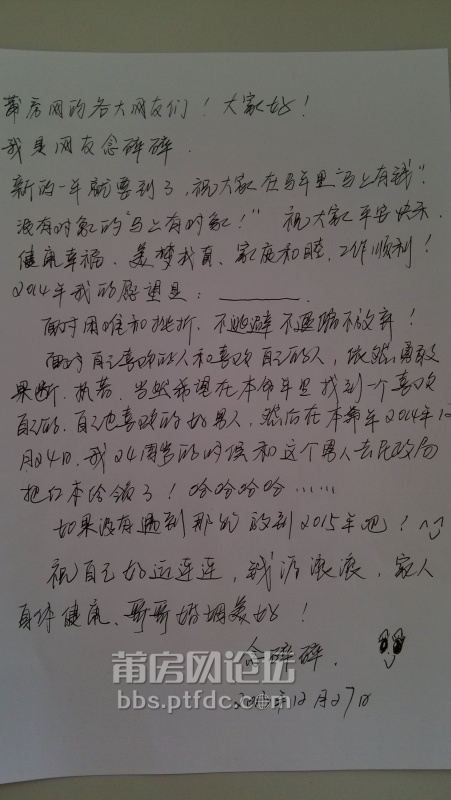 莆房网的各大网友们！大家好！
我是网友念碎碎.
新的一年就要到了，祝大家在马年里"马上有钱"。
没有对象的"马上有对象！" 祝大家平安快乐、
健康幸福、美梦成真、家庭和睦、工作顺利！
2014年我的愿望是：
面对困难和挫折、不逃避不退缩不放弃！
面对自己喜欢的人和喜欢自己的人，依然勇敢
果断、执着、当然希望在本命年里找到一个喜欢
自己的、自己也喜欢的好男人，然后在本命年2014年12
月24日、我24周岁的时候和这个男人去民政局
把红本给领了！哈哈哈哈……
如果没有遇到那就 到2015年吧！
祝自己好运连连，钱源滚滚，家人
身体健康、哥哥婚姻美好！
念碎碎.
2013年12月27日
莆房网论坛
bbs.ptfdc.com